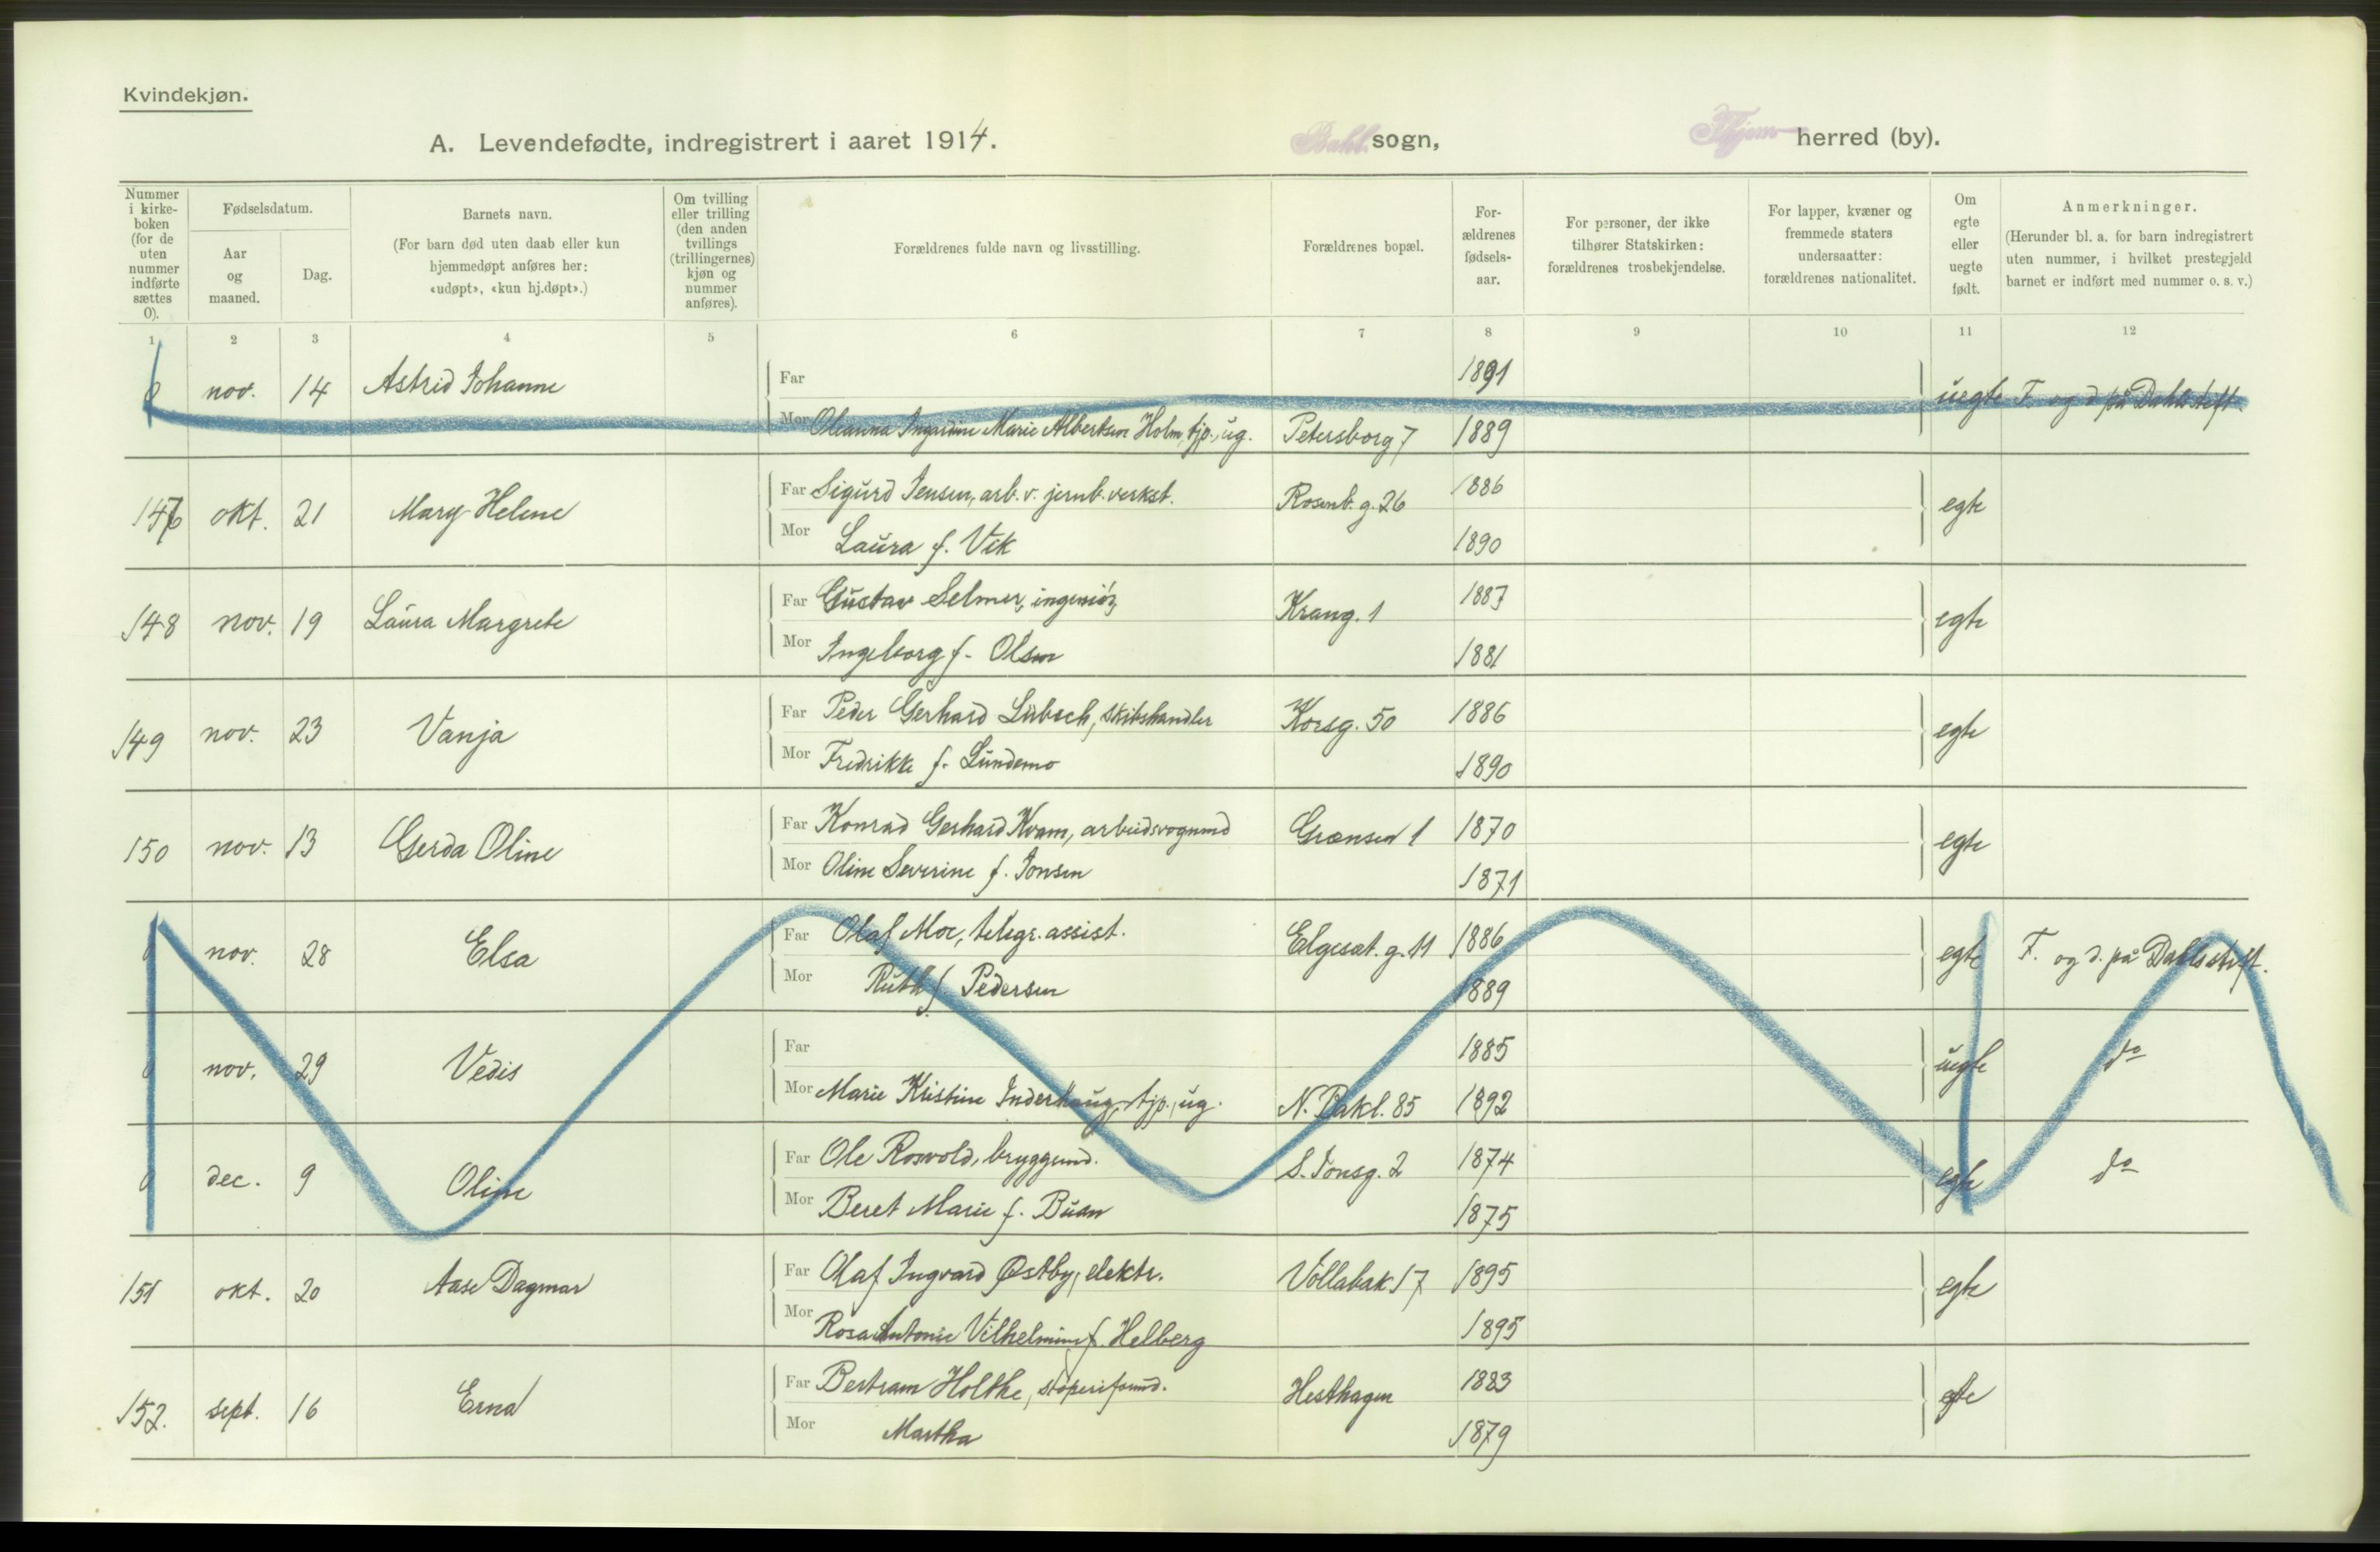 Kvindekjøn.
A. Levendefødte, indregistrert i aaret 1914. Bakl. sogn, Thjem herred (by).
Nummer i kirke-boken (for de uten nummer indførte sættes 0).
Fødselsdatum.
Aar og maaned.
Dag.
Barnets navn.
(For barn død uten daab eller kun hjemmedøpt anføres her: «udøpt», «kun hj.døpt».)
Om tvilling eller trilling (den anden tvillings (trillingernes) kjøn og nummer anføres).
Forældrenes fulde navn og livsstilling.
Forældrenes bopæl.
For-ældrenes fødsels-aar.
For personer, der ikke tilhører Statskirken: forældrenes trosbekjendelse.
For lapper, kvæner og fremmede staters undersaatter: forældrenes nationalitet.
Om egte eller uegte født.
Anmerkninger.
(Herunder bl. a. for barn indregistrert uten nummer, i hvilket prestegjeld barnet er indført med nummer o. s. v.)
1 2 3 4 5 6 7 8 9 10 11 12
0 nov. 14 Astrid Johanne Far 1891 uegte F. og d på Dahls stift
Mor Oleanna Ingardine Marie Albertsen Holm, tjp., ug. Petersborg 7 1889
147 okt. 21 Mary Helene Far Sigurd Jensen, arb. v. jernb. verkst. Rosenb. g. 26 1886 egte
Mor Laura f. Vik 1890
148 nov. 19 Laura Margrete Far Gustav Selmer, ingeniör, Krang. 1 1887 egte
Mor Ingeborg f. Olsen 1881
149 nov. 23 Vanja Far Peder Gerhard Lübsch, skibshandler Korsg. 50 1886 egte
Mor Fredrikke f. Lundemo 1890
150 nov. 13 Gerda Oline Far Konrad Gerhard Kvam, arbeidsvognmd Grænsen 1 1870 egte
Mor Oline Severine f. Jonsen 1871
0 nov. 28 Elsa Far Olaf Moe, telegr. assist. Elgesæt. g. 11 1886 egte F. og d. på Dahls stift.
Mor Ruth f. Pedersen 1889
0 nov. 29 Vedis Far 1885 uegte do
Mor Marie Kristine Inderhaug, tjp., ug. N. Bakl. 85 1892
0 dec. 9 Oline Far Ole Rosvold, bryggemd. S. Jonsg. 2 1874 egte do
Mor Beret Marie f. Buan 1875
151 okt. 20 Aase Dagmar Far Olaf Ingvard Østby, elektr. Vollabak 17 1895 egte
Mor Rosa Antonie Vilhelmine f. Helberg 1895
152. sept. 16 Erna Far Bertram Holthe, støperiformd. Hesthagen 1883 egte
Mor Martha 1879